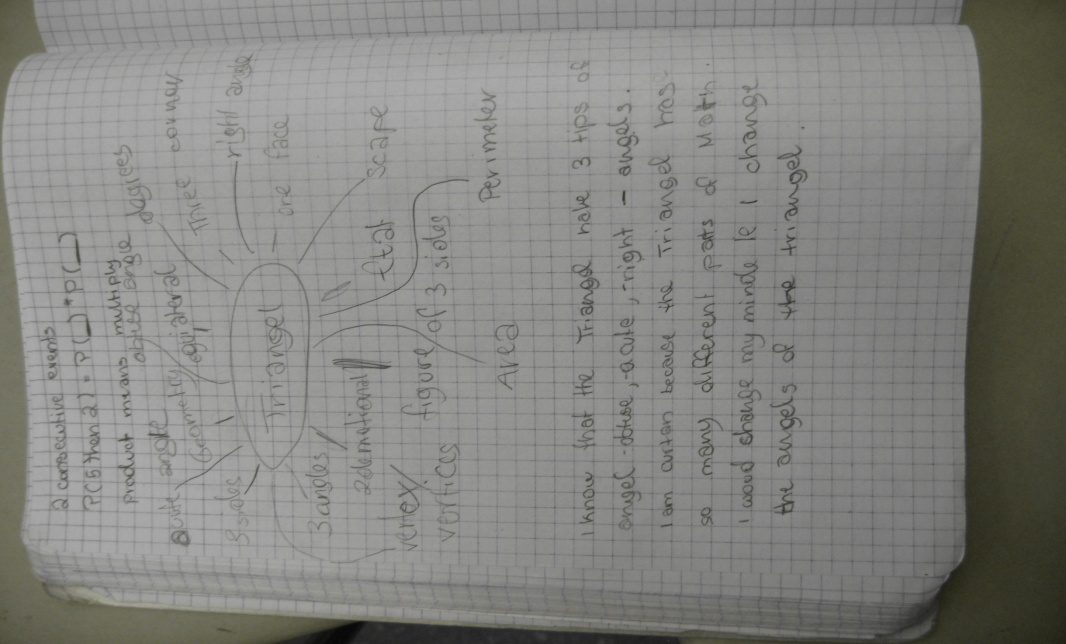 2 consecutive events
P(5 then 2) = P(__) * P(__)
product means multiply
acute angle
obuse angle
degrices
Geometry
eqviateral
Three cornor
3 sides
right angle
Triangel
one face
3 angles
scape
2demotional
flat
vertex
figure of 3 sides
vertices
Perimeter
Area
I know that the Triangel hake 3 tips of
angel -obtuse, -acute, -right - angels.
I am because the Triangel has
so many different parts of Math.
I woud change my minde if I change
the angels of the triangel.